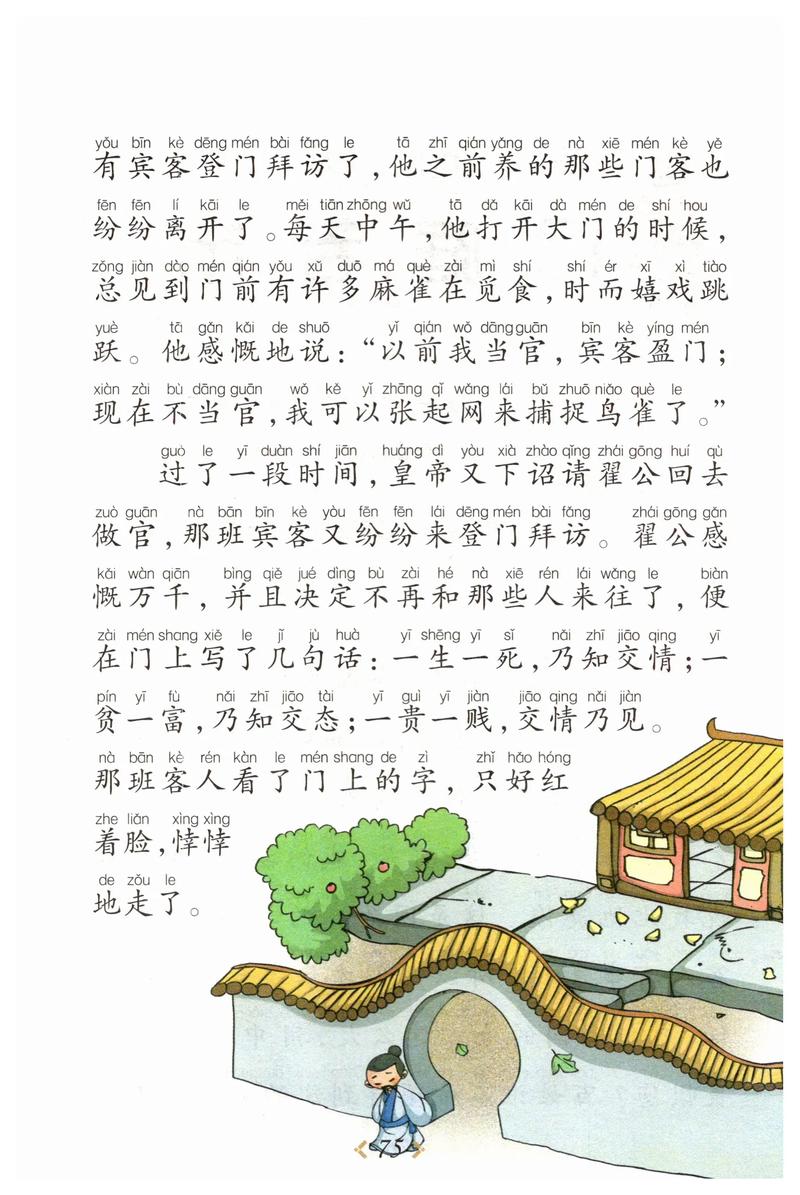 yǒu bīn kè dēng mén bài fǎng le tā zhī qián yǎng de nà xiē mén kè yě
有宾客登门拜访了，他之前养的那些门客也
fēn fēn lí kāi le měi tiān zhōng wǔ tā dǎ kāi dà mén de shí hou
纷纷离开了。每天中午，他打开大门的时候，
zǒng jiàn dào mén qián yǒu xǔ duō má què zài mì shí shí ér xī xì tiào
总见到门前有许多麻雀在觅食，时而嬉戏跳
yuè tā gǎn kǎi de shuō yǐ qián wǒ dāng guān bīn kè yíng mén
跃。他感慨地说：“以前我当官，宾客盈门；
xiàn zài bù dāng guān wǒ kě yǐ zhāng qǐ wǎng lái bǔ zhuō niǎo què le
现在不当官，我可以张起网来捕捉鸟雀了。”
guò le yī duàn shí jiān huáng dì yòu xià zhào qǐng zhái gōng huí qù
过了一段时间，皇帝又下诏请翟公回去
zuò guān nà bān bīn kè yòu fēn fēn lái dēng mén bài fǎng zhái gōng gǎn
做官，那班宾客又纷纷来登门拜访。翟公感
kǎi wàn qiān bìng qiě jué dìng bù zài hé nà xiē rén lái wǎng le biàn
慨万千，并且决定不再和那些人来往了，便
zài mén shang xiě le jǐ jù huà yī shēng yī sǐ nǎi zhī jiāo qing yī
在门上写了几句话：一生一死，乃知交情；一
pín yī fù nǎi zhī jiāo tài yī guì yī jiàn jiāo qing nǎi jiàn
贫一富，乃知交态；一贵一贱，交情乃见。
nà bān kè rén kàn le mén shang de zì zhǐ hǎo hóng
那班客人看了门上的字，只好红
zhe liǎn xìng xìng
着脸，悻悻
de zǒu le
地走了。
75